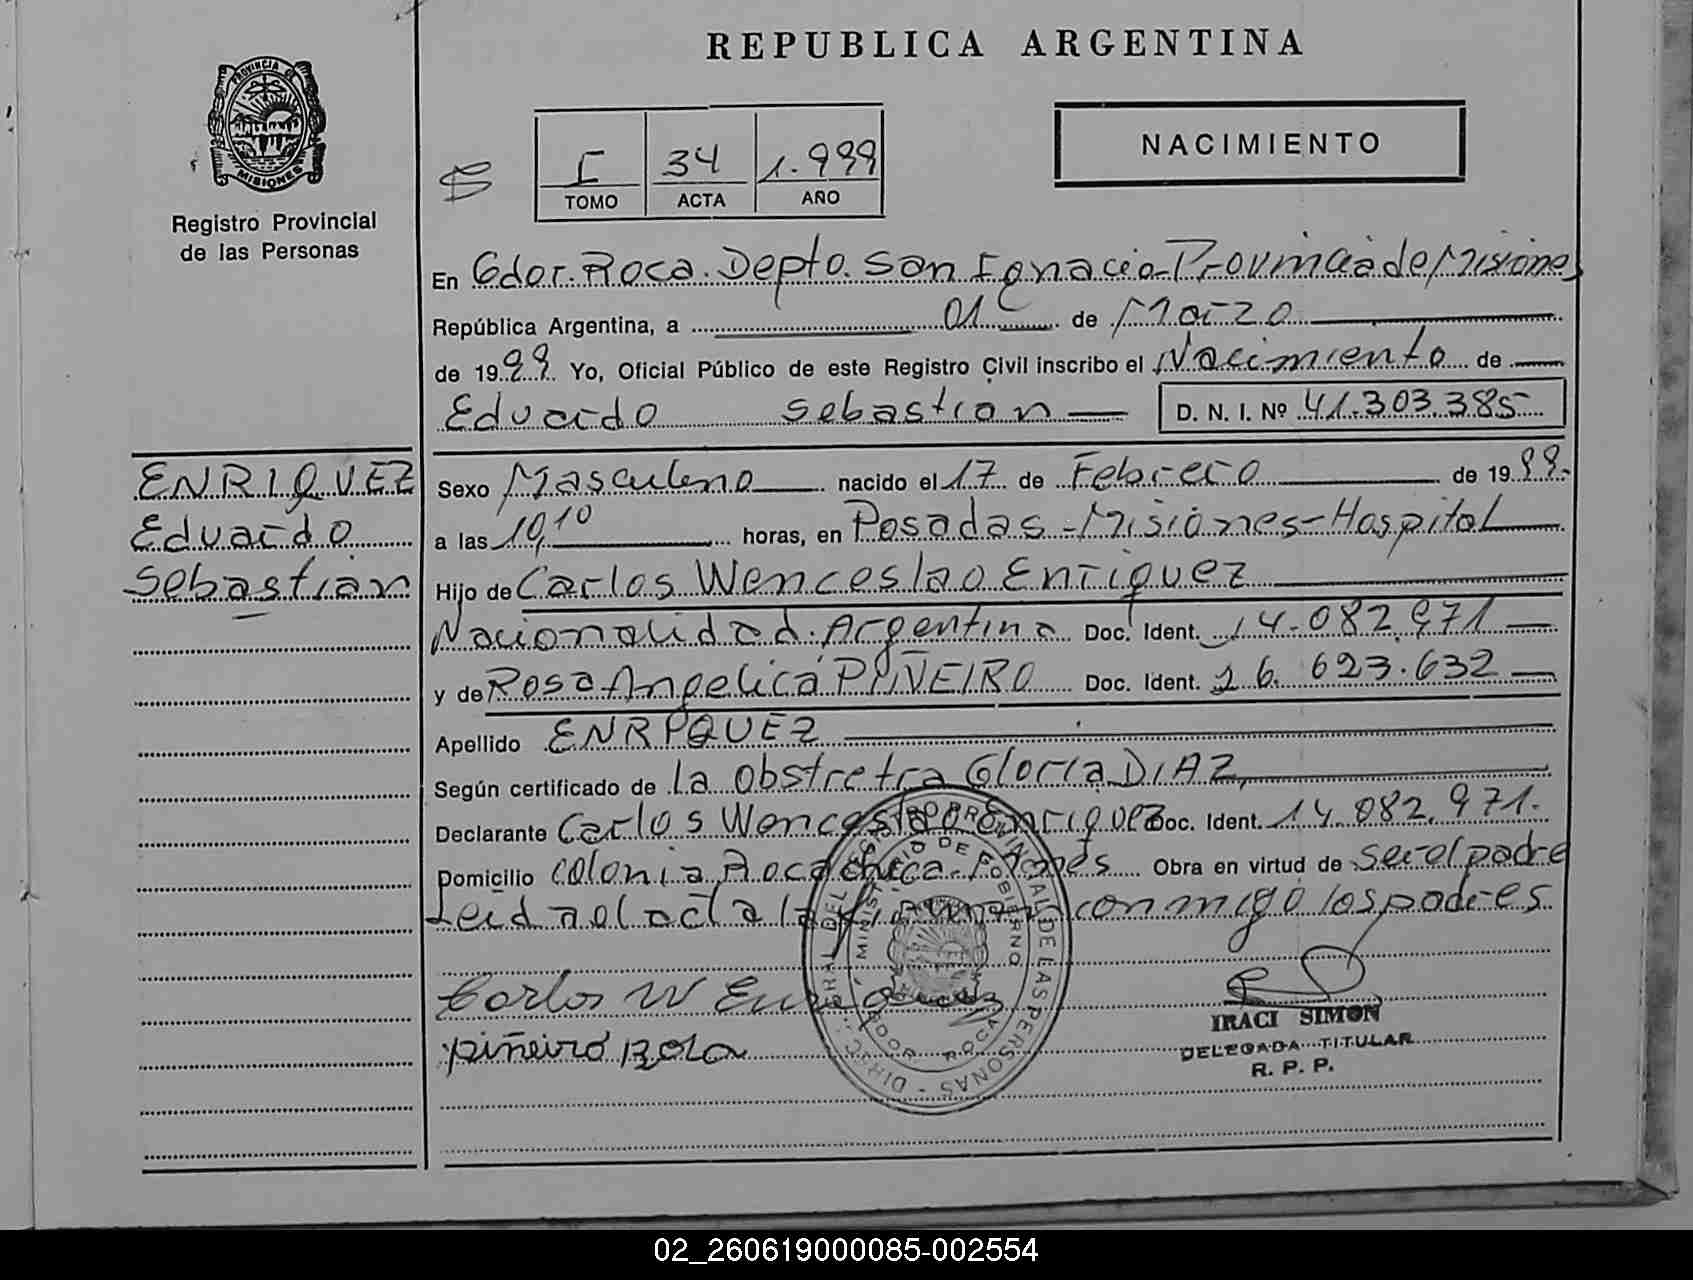 REPUBLICA ARGENTINA
PROVINCIA DE
MISIONES
Registro Provincial
de las Personas
I 34 1.999
TOMO ACTA AÑO
NACIMIENTO
En Gdor. Roca. Depto. San Ignacio-Provincia de Misiones
República Argentina, a 01 de Marzo
de 1999. Yo, Oficial Público de este Registro Civil inscribo el Nacimiento de
Eduardo Sebastian D. N. I. Nº 41.303.385
ENRIQUEZ
Eduardo
Sebastián
Sexo Masculino nacido el 17 de Febrero de 1999.
a las 19,10 horas, en Posadas-Misiones-Hospital
Hijo de Carlos Wenceslao Enriquez
Nacionalidad. Argentina Doc. Ident. 14.082.971
y de Rosa Angelica PIÑEIRO Doc. Ident. 16.623.632
Apellido ENRIQUEZ
Según certificado de la obstretra Gloria DIAZ,
Declarante Carlos Wenceslao Enriquez Doc. Ident. 14.082.971.
Domicilio Colonia Roca chica. Obra en virtud de ser el padre
Leida el acta la firman conmigo los padres
Carlos W Enriquez
piñeiro Rosa
DIREC. GRAL DEL REGISTRO PROVINCIAL DE LAS PERSONAS
MINISTERIO DE GOBIERNO
GDOR ROCA
IRACI SIMON
DELEGADA TITULAR
R. P. P.
02_260619000085-002554